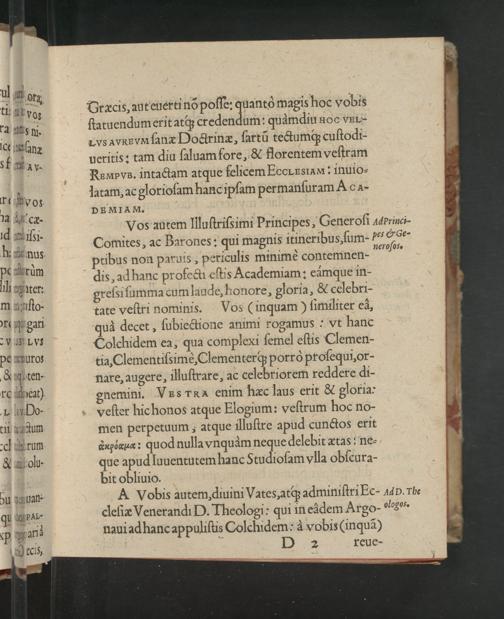 Græcis, aut euerti nõ posse: quantò magis hoc vobis
statuendum erit atq; credendum: quàmdiu HOC VEL-
LVS AVREVM sanæ Doctrinæ, sartũ tectumq; custodi-
ueritis: tam diu saluam fore, & florentem vestram
REMPVB. intactam atque felicem ECCLESIAM: inuio-
latam, ac gloriosam hanc ipsam permansuram ACA-
DEMIAM.
Vos autem Illustrissimi Principes, Generosi
Ad Princi-
Comites, ac Barones: qui magnis itineribus, sum-
pes & Ge-
ptibus non paruis, periculis minimè contemnen-
nerosos.
dis, ad hanc profecti estis Academiam: eámque in-
gressi summa cum laude, honore, gloria, & celebri-
tate vestri nominis. Vos (inquam) similiter eâ,
quâ decet, subiectione animi rogamus: vt hanc
Colchidem ea, qua complexi semel estis Clemen-
tia, Clementissimè, Clementerq; porrò prosequi, or-
nare, augere, illustrare, ac celebriorem reddere di-
gnemini. VESTRA enim hæc laus erit & gloria:
vester hic honos atque Elogium: vestrum hoc no-
men perpetuum, atque illustre apud cunctos erit
ἀκρόαμα: quod nulla vnquàm neque delebit ætas: ne-
que apud Iuuentutem hanc Studiosam vlla obscura-
bit obliuio.
A Vobis autem, diuini Vates, atq; administri Ec-
Ad D. The
clesiæ Venerandi D. Theologi: qui in eâdem Argo-
ologos.
naui ad hanc appulistis Colchidem: à vobis (inquã)
D 2 reue-